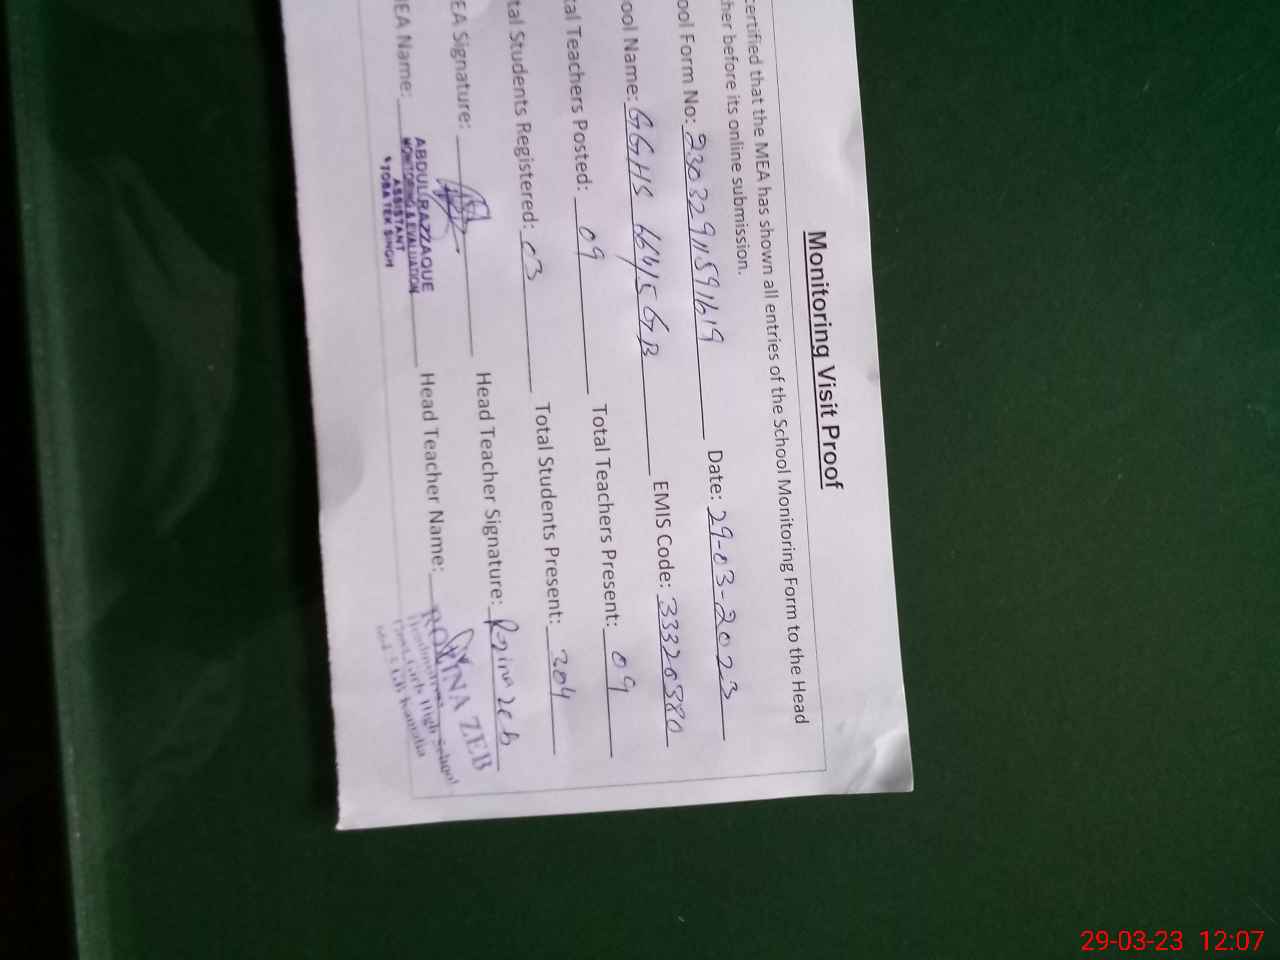 Monitoring Visit Proof
certified that the MEA has shown all entries of the School Monitoring Form to the Head
her before its online submission.
ool Form No: 23032911591619 Date: 29-03-2023
ool Name: GGHS 664/5 GB EMIS Code: 33320380
tal Teachers Posted: 09 Total Teachers Present: 09
tal Students Registered: 03 Total Students Present: 204
EA Signature: Head Teacher Signature: Rozina Zeb
EA Name: ABDUL RAZZAQUE Head Teacher Name: ROZINA ZEB
MONITORING & EVALUATION
ASSISTANT
TOBA TEK SINGH
Headmistress
Govt. Girls High School
Kamalia
29-03-23 12:07